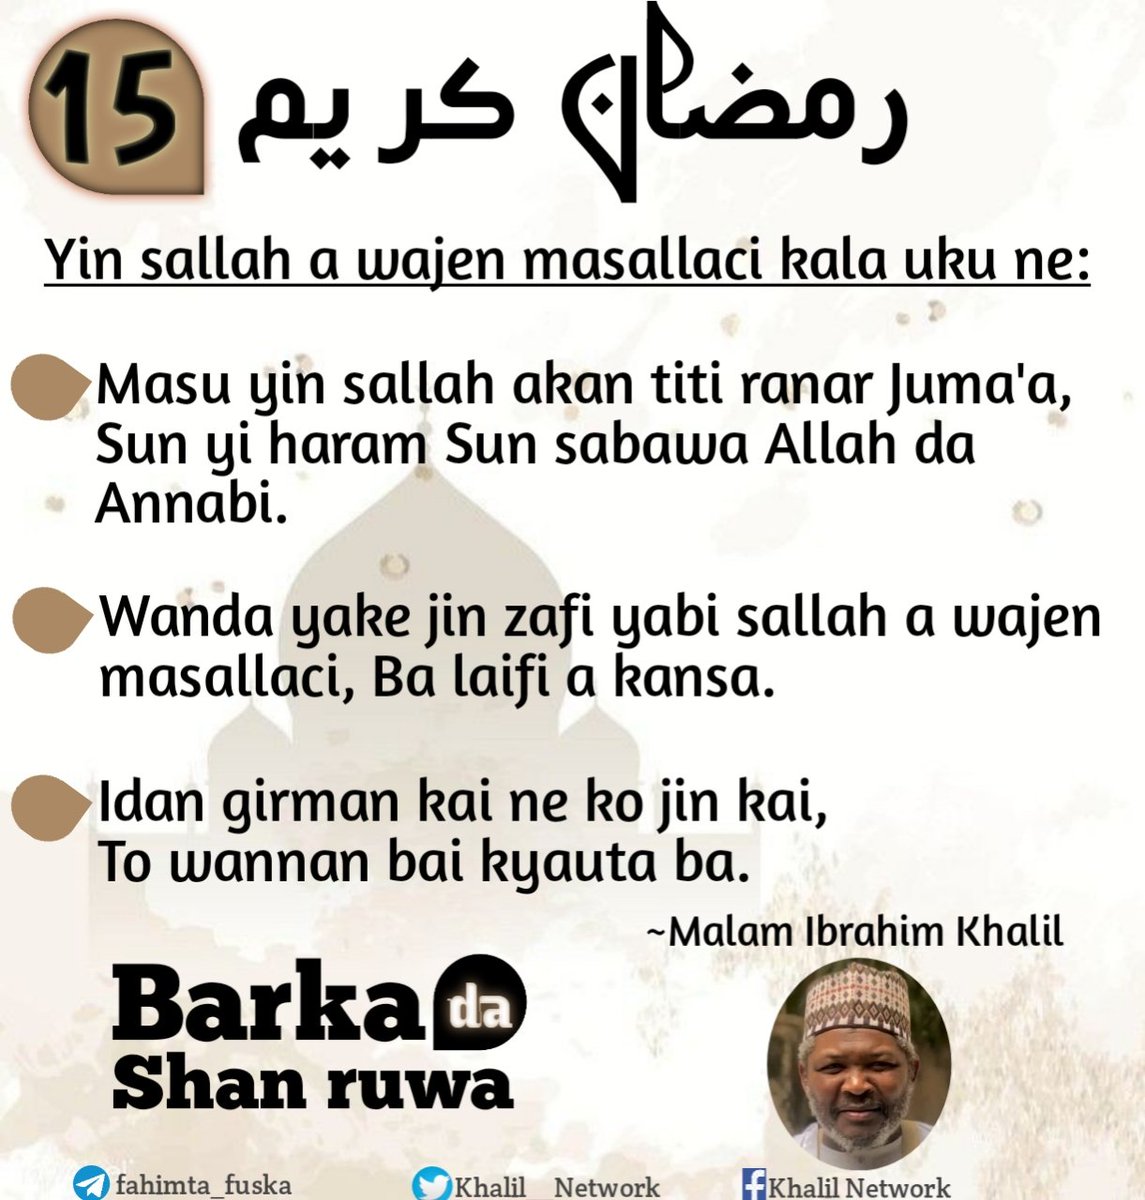 15
رمضان كريم
Yin sallah a wajen masallaci kala uku ne:
Masu yin sallah akan titi ranar Juma'a,
Sun yi haram Sun sabawa Allah da
Annabi.
Wanda yake jin zafi yabi sallah a wajen
masallaci, Ba laifi a kansa.
Idan girman kai ne ko jin kai,
To wannan bai kyauta ba.
~Malam Ibrahim Khalil
Barka da
Shan ruwa
fahimta_fuska
Khalil__Network
Khalil Network